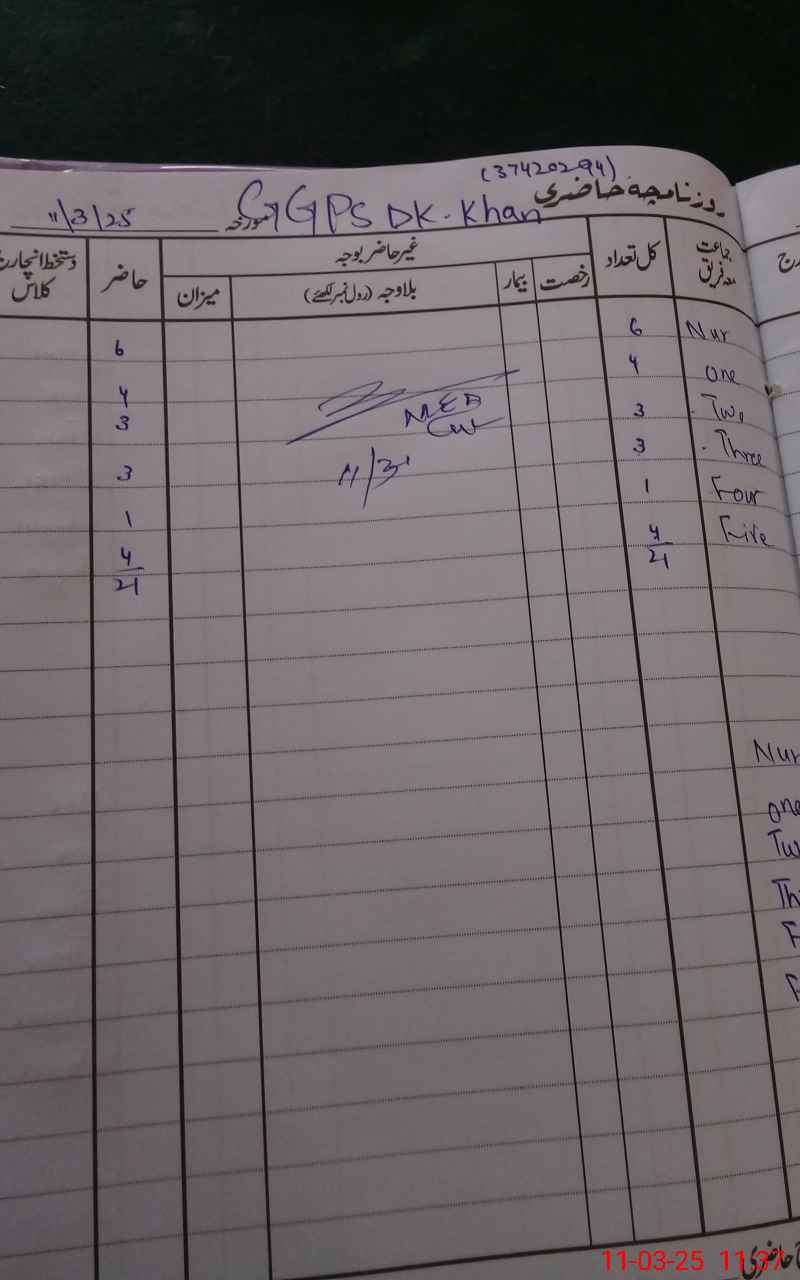 (37420294)
روزنامچہ حاضری GGPS DK. Khan مورخہ 11/3/25
جماعت معہ فریق کل تعداد غیر حاضر بوجہ حاضر دستخط انچارج کلاس
رخصت بیمار بلاوجہ (رول نمبر لکھئے) میزان
Nur 6 6
One 4 4
Two 3 3
Three 3 3
Four 1 1
Five 4 4
21 21
MEA
11/3
Nur
one
Tw
Th
F
F
حاضری
11-03-25 11:37